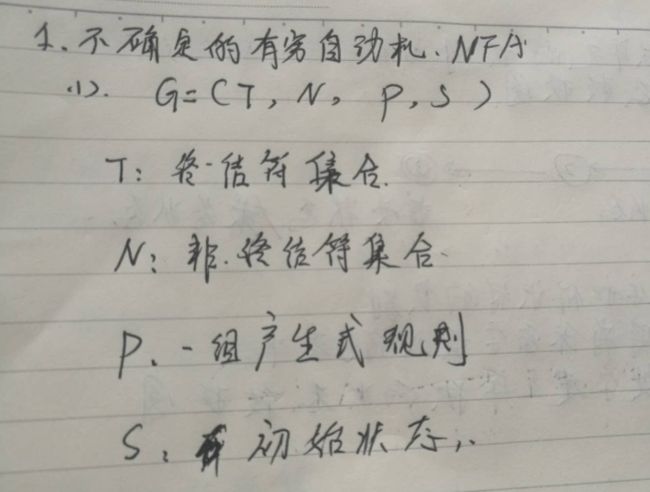 1. 不确定的有穷自动机. NFA
(1). G=(T, N, P, S)
T: 终结符集合.
N: 非终结符集合.
P. 一组产生式规则
S: 初始状态..